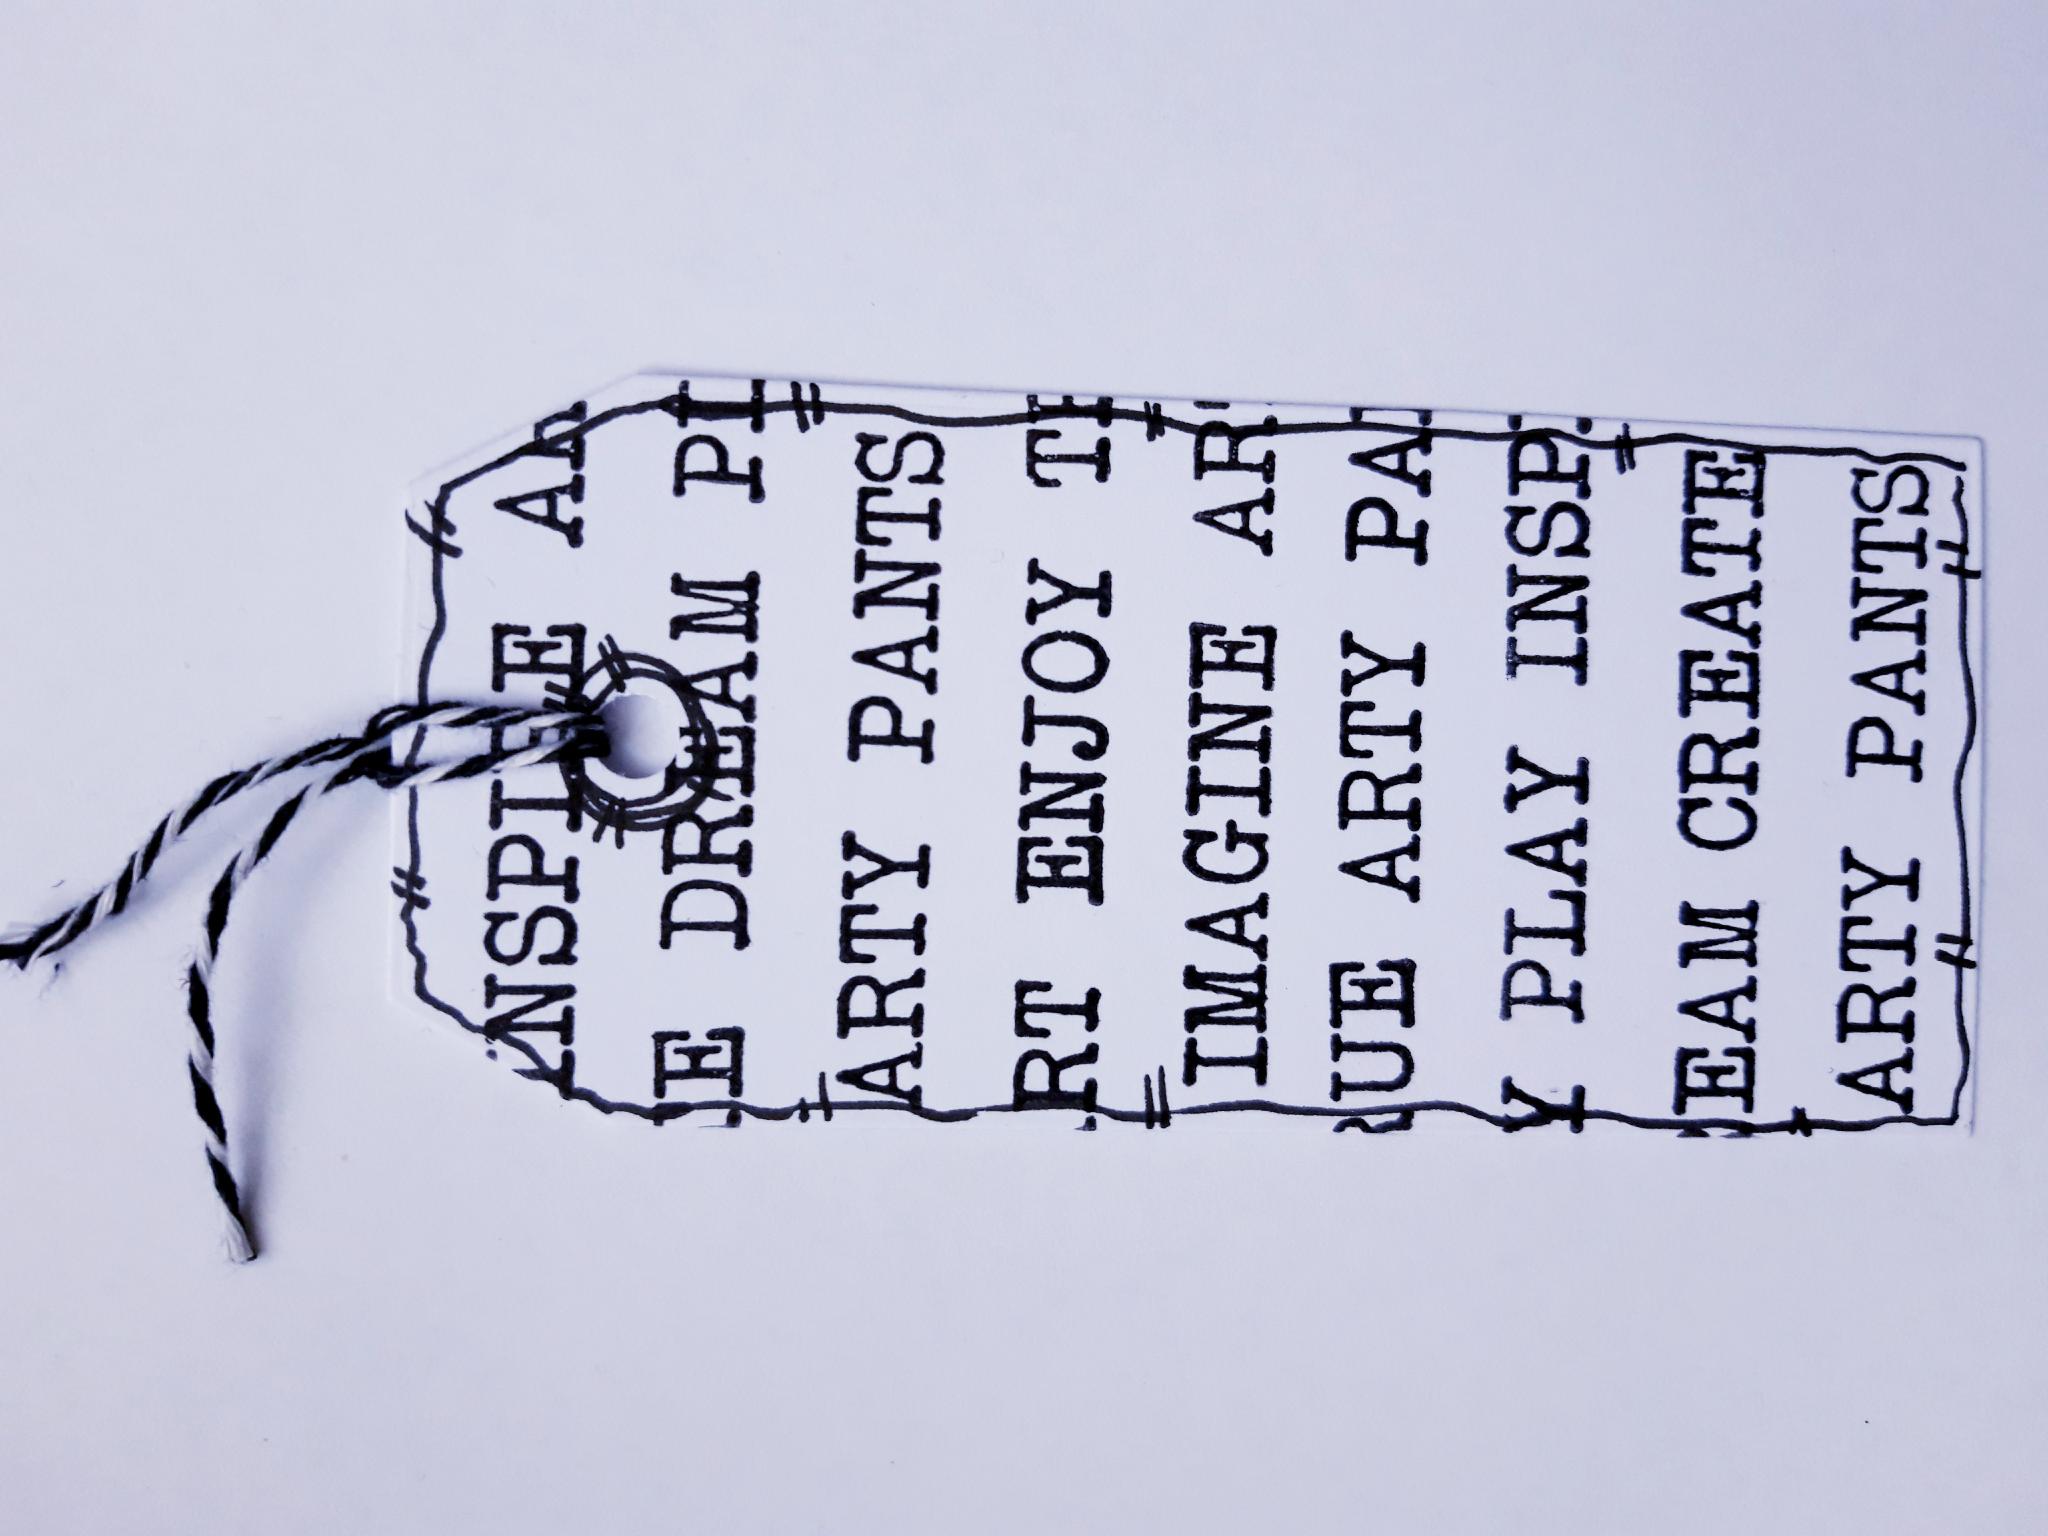 INSPIRE AR
E DREAM PL
ARTY PANTS
RT ENJOY TE
IMAGINE AR
UE ARTY PA
Y PLAY INSP
EAM CREATE
ARTY PANTS